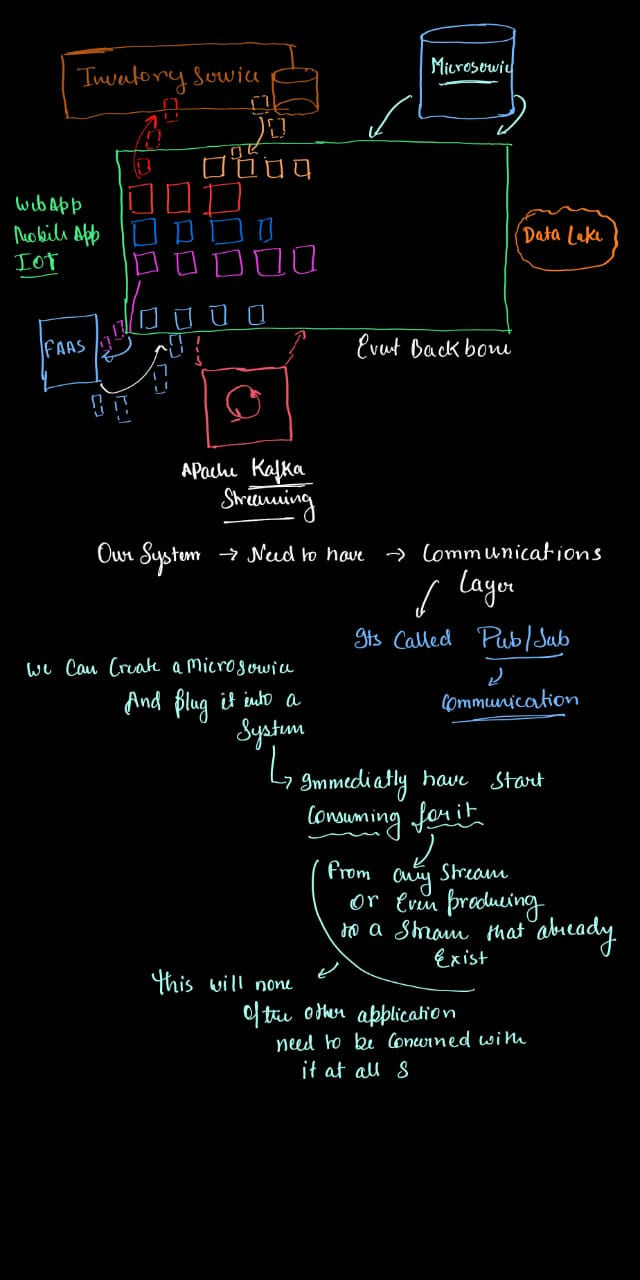 Inventory Service
Microservic
WebApp
Mobile App
IOT
Data Lake
FAAS
Event Backbone
Apache Kafka
Streaming
Our System → Need to have → Communications
Layer
Its Called Pub/Sub
Communication
We Can Create a Microservice
And Plug it into a
System
Immediatly have Start
Consuming for it
From any Stream
Or Even producing
to a Stream that already
Exist
This will none
Of the other application
need to be Concerned with
it at all S